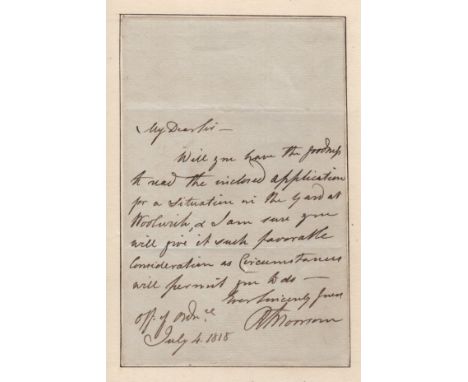 My Dear Sir —
Will you have the goodness
to read the inclosed application
for a situation in the Yard at
Woolwich, & I am sure you
will give it such favorable
Consideration as Circumstances
will permit you to do —
Ever Sincerely Yours
Off. of Ordn.ce
July 4. 1818